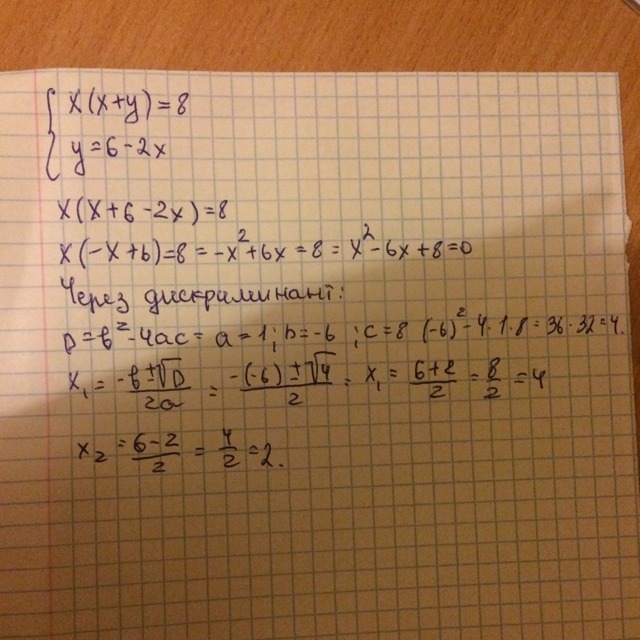 { x(x+y)=8
y=6-2x
x(x+6-2x)=8
x(-x+6)=8 = -x²+6x=8 = x²-6x+8=0
Через дискриминант:
D=b²-4ac= a=1; b=-6 ; c=8 (-6)²-4·1·8=36-32=4.
x₁ = (-b±√D)/2a = (-(-6)±√4)/2 = x₁ = (6+2)/2 = 8/2 = 4
x₂ = (6-2)/2 = 4/2 = 2.